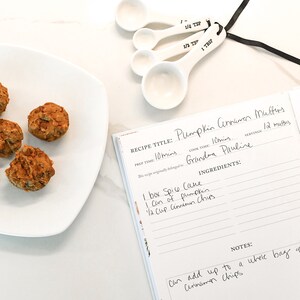 1/2 TSP
1 TSP
RECIPE TITLE: Pumpkin Cinnamon Muffins
PREP TIME: 10 mins COOK TIME: 10 mins SERVINGS: 12 muffins
This recipe originally belonged to: Grandma Pauline
INGREDIENTS:
1 box Spice Cake
1 can of pumpkin
1/2 cup cinnamon chips
NOTES:
can add up to a whole bag of
cinnamon chips